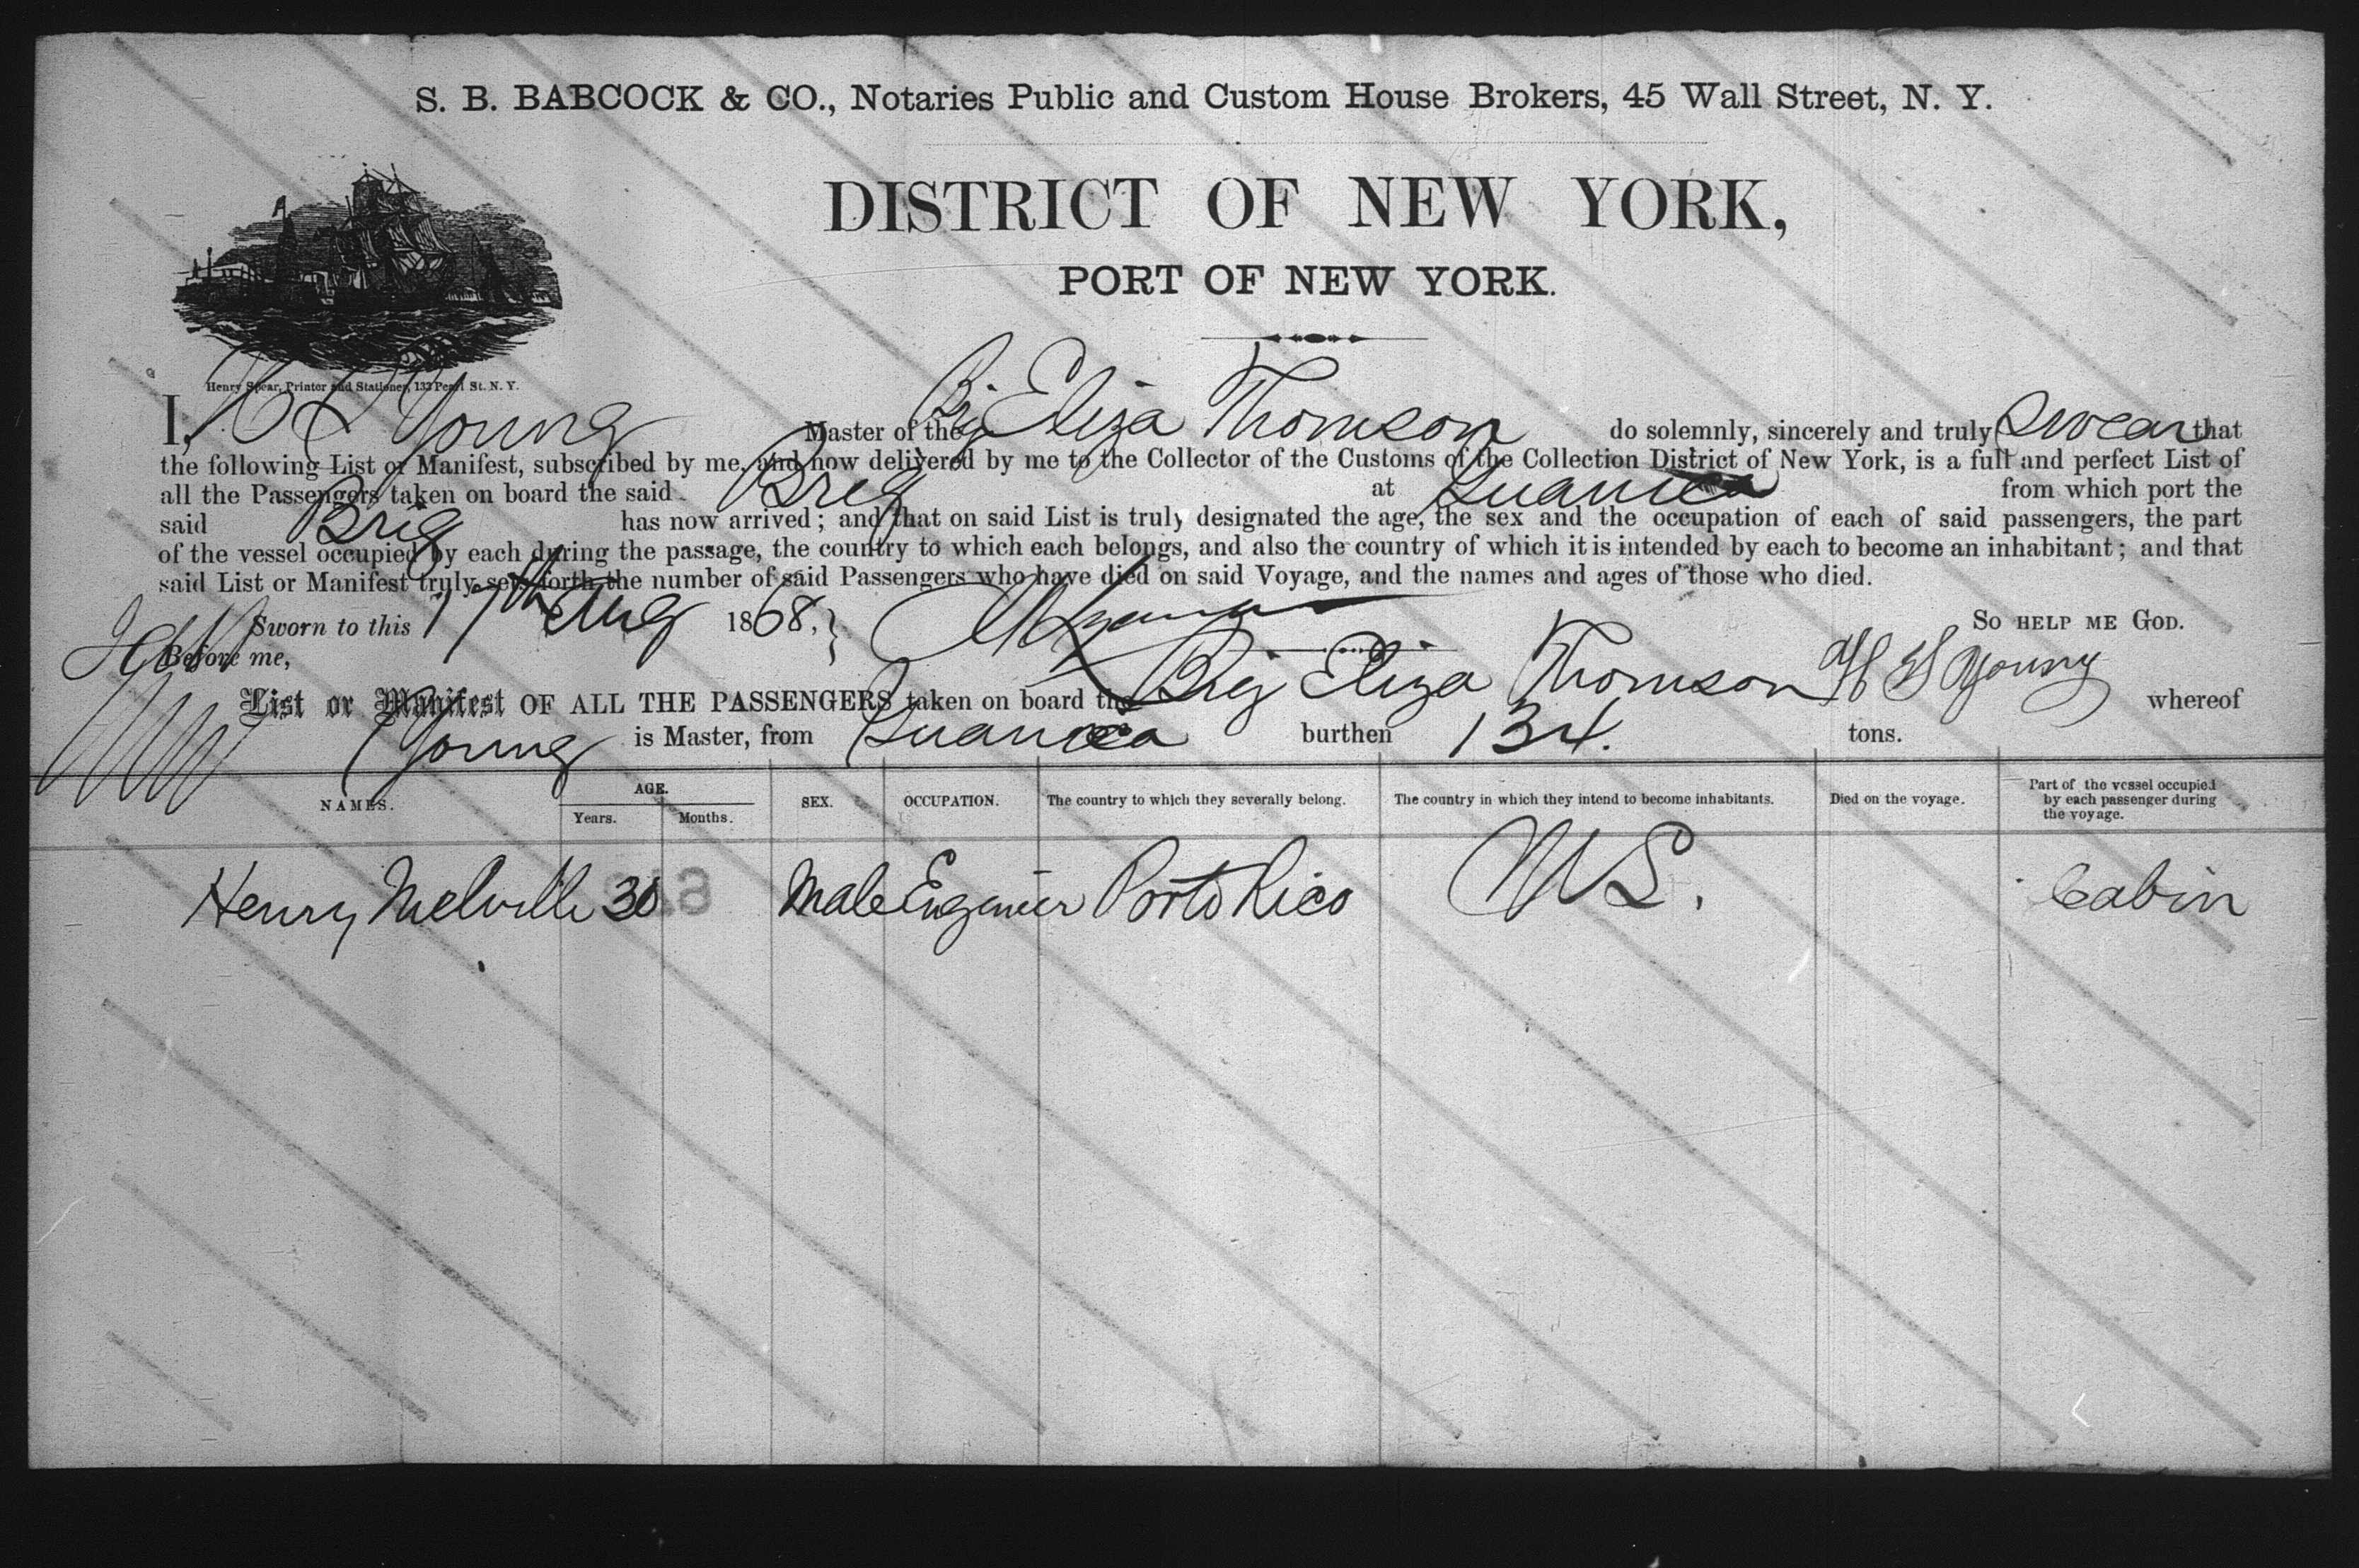 S. B. BABCOCK & CO., Notaries Public and Custom House Brokers, 45 Wall Street, N. Y.
DISTRICT OF NEW YORK,
PORT OF NEW YORK.
Henry Spear, Printer and Stationer, 133 Pearl St. N. Y.
I, Young Master of the Brig Eliza Thomson do solemnly, sincerely and truly Swear that
the following List or Manifest, subscribed by me, and now delivered by me to the Collector of the Customs of the Collection District of New York, is a full and perfect List of
all the Passengers taken on board the said Brig at Guanica from which port the
said Brig has now arrived; and that on said List is truly designated the age, the sex and the occupation of each of said passengers, the part
of the vessel occupied by each during the passage, the country to which each belongs, and also the country of which it is intended by each to become an inhabitant; and that
said List or Manifest truly sets forth the number of said Passengers who have died on said Voyage, and the names and ages of those who died.
Sworn to this 17th Aug 1868, SO HELP ME GOD.
Before me,
List or Manifest OF ALL THE PASSENGERS taken on board the Brig Eliza Thomson Young whereof
Young is Master, from Guanica burthen 134. tons.
NAMES. AGE. Years. Months. SEX. OCCUPATION. The country to which they severally belong. The country in which they intend to become inhabitants. Died on the voyage. Part of the vessel occupied by each passenger during the voyage.
Henry Melville 30 Male Engineer Porto Rico U S. Cabin